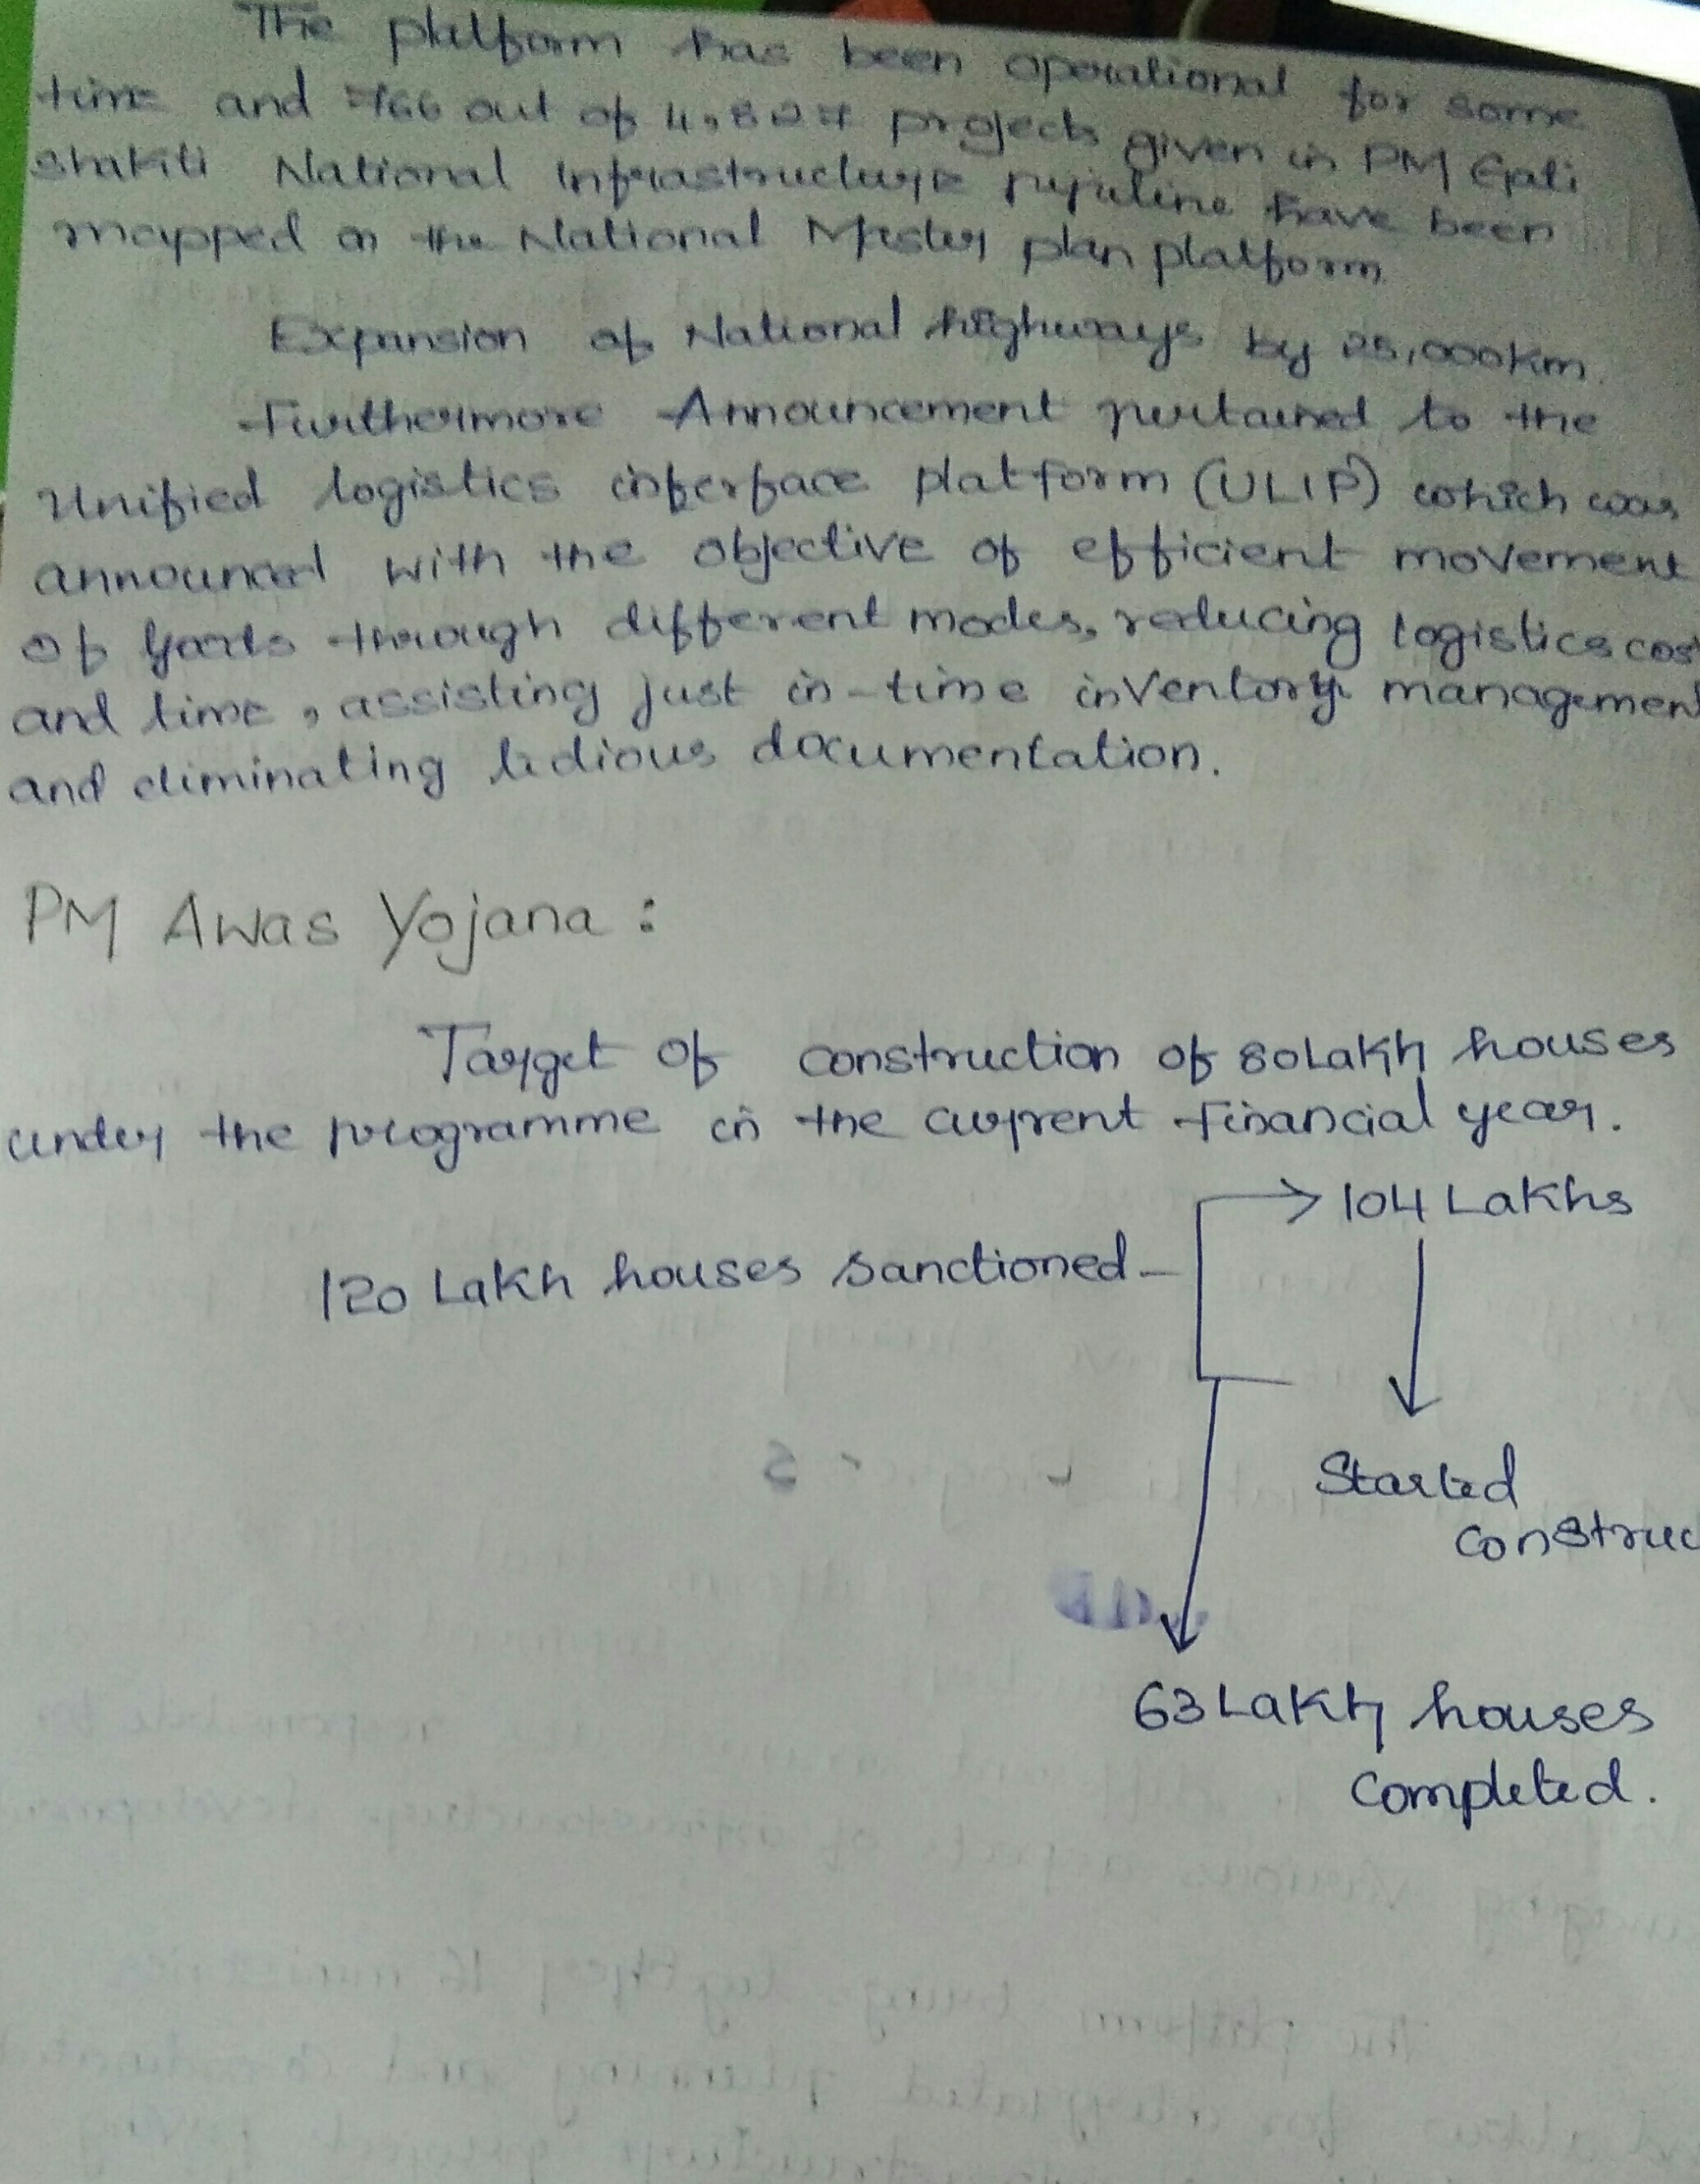 The platform has been operational for some
time and 766 out of 4,827 projects given in PM Gati
shakti National Infrastructure pipeline have been
mapped on the National Master plan platform.
Expansion of National highways by 25,000km.
Furthermore Announcement pertained to the
Unified logistics interface platform (ULIP) which was
announced with the objective of efficient movement
of goods through different modes, reducing logistics cos
and time, assisting just in-time inventory management
and eliminating tedious documentation.
PM Awas Yojana :
Target of construction of 80 Lakh houses
under the programme in the current financial year.
104 Lakhs
120 Lakh houses sanctioned
Started
construc
63 Lakh houses
completed.